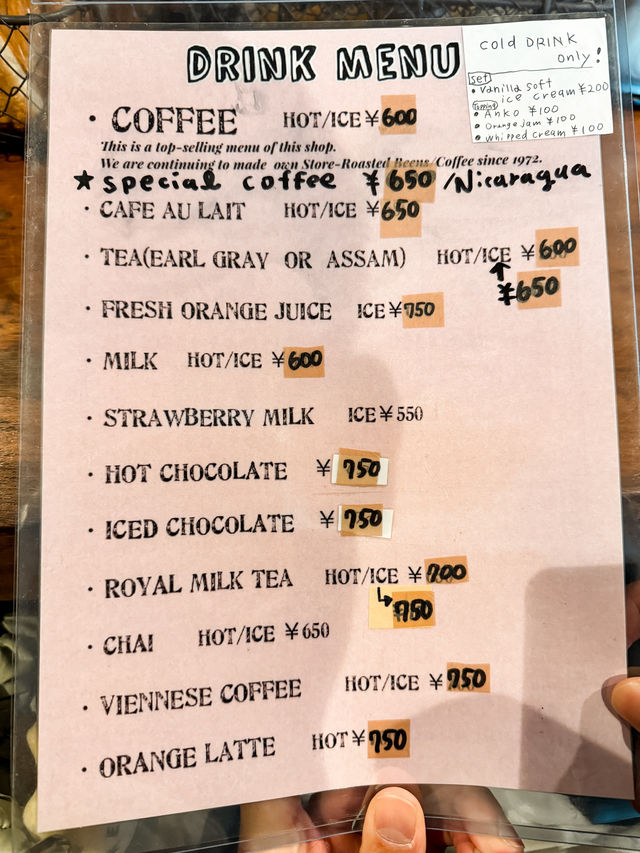 DRINK MENU
cold DRINK
only!
set
• Vanilla soft
ice cream ¥200
• Anko ¥100
• Orange jam ¥100
• Whipped cream ¥100
• COFFEE HOT/ICE ¥600
This is a top-selling menu of this shop.
We are continuing to made own Store-Roasted Beens/Coffee since 1972.
★ special coffee ¥650 /Nicaragua
• CAFE AU LAIT HOT/ICE ¥650
• TEA(EARL GRAY OR ASSAM) HOT/ICE ¥600
↑
¥650
• FRESH ORANGE JUICE ICE ¥750
• MILK HOT/ICE ¥600
• STRAWBERRY MILK ICE ¥550
• HOT CHOCOLATE ¥750
• ICED CHOCOLATE ¥750
• ROYAL MILK TEA HOT/ICE ¥700
↳ ¥750
• CHAI HOT/ICE ¥650
• VIENNESE COFFEE HOT/ICE ¥750
• ORANGE LATTE HOT ¥750